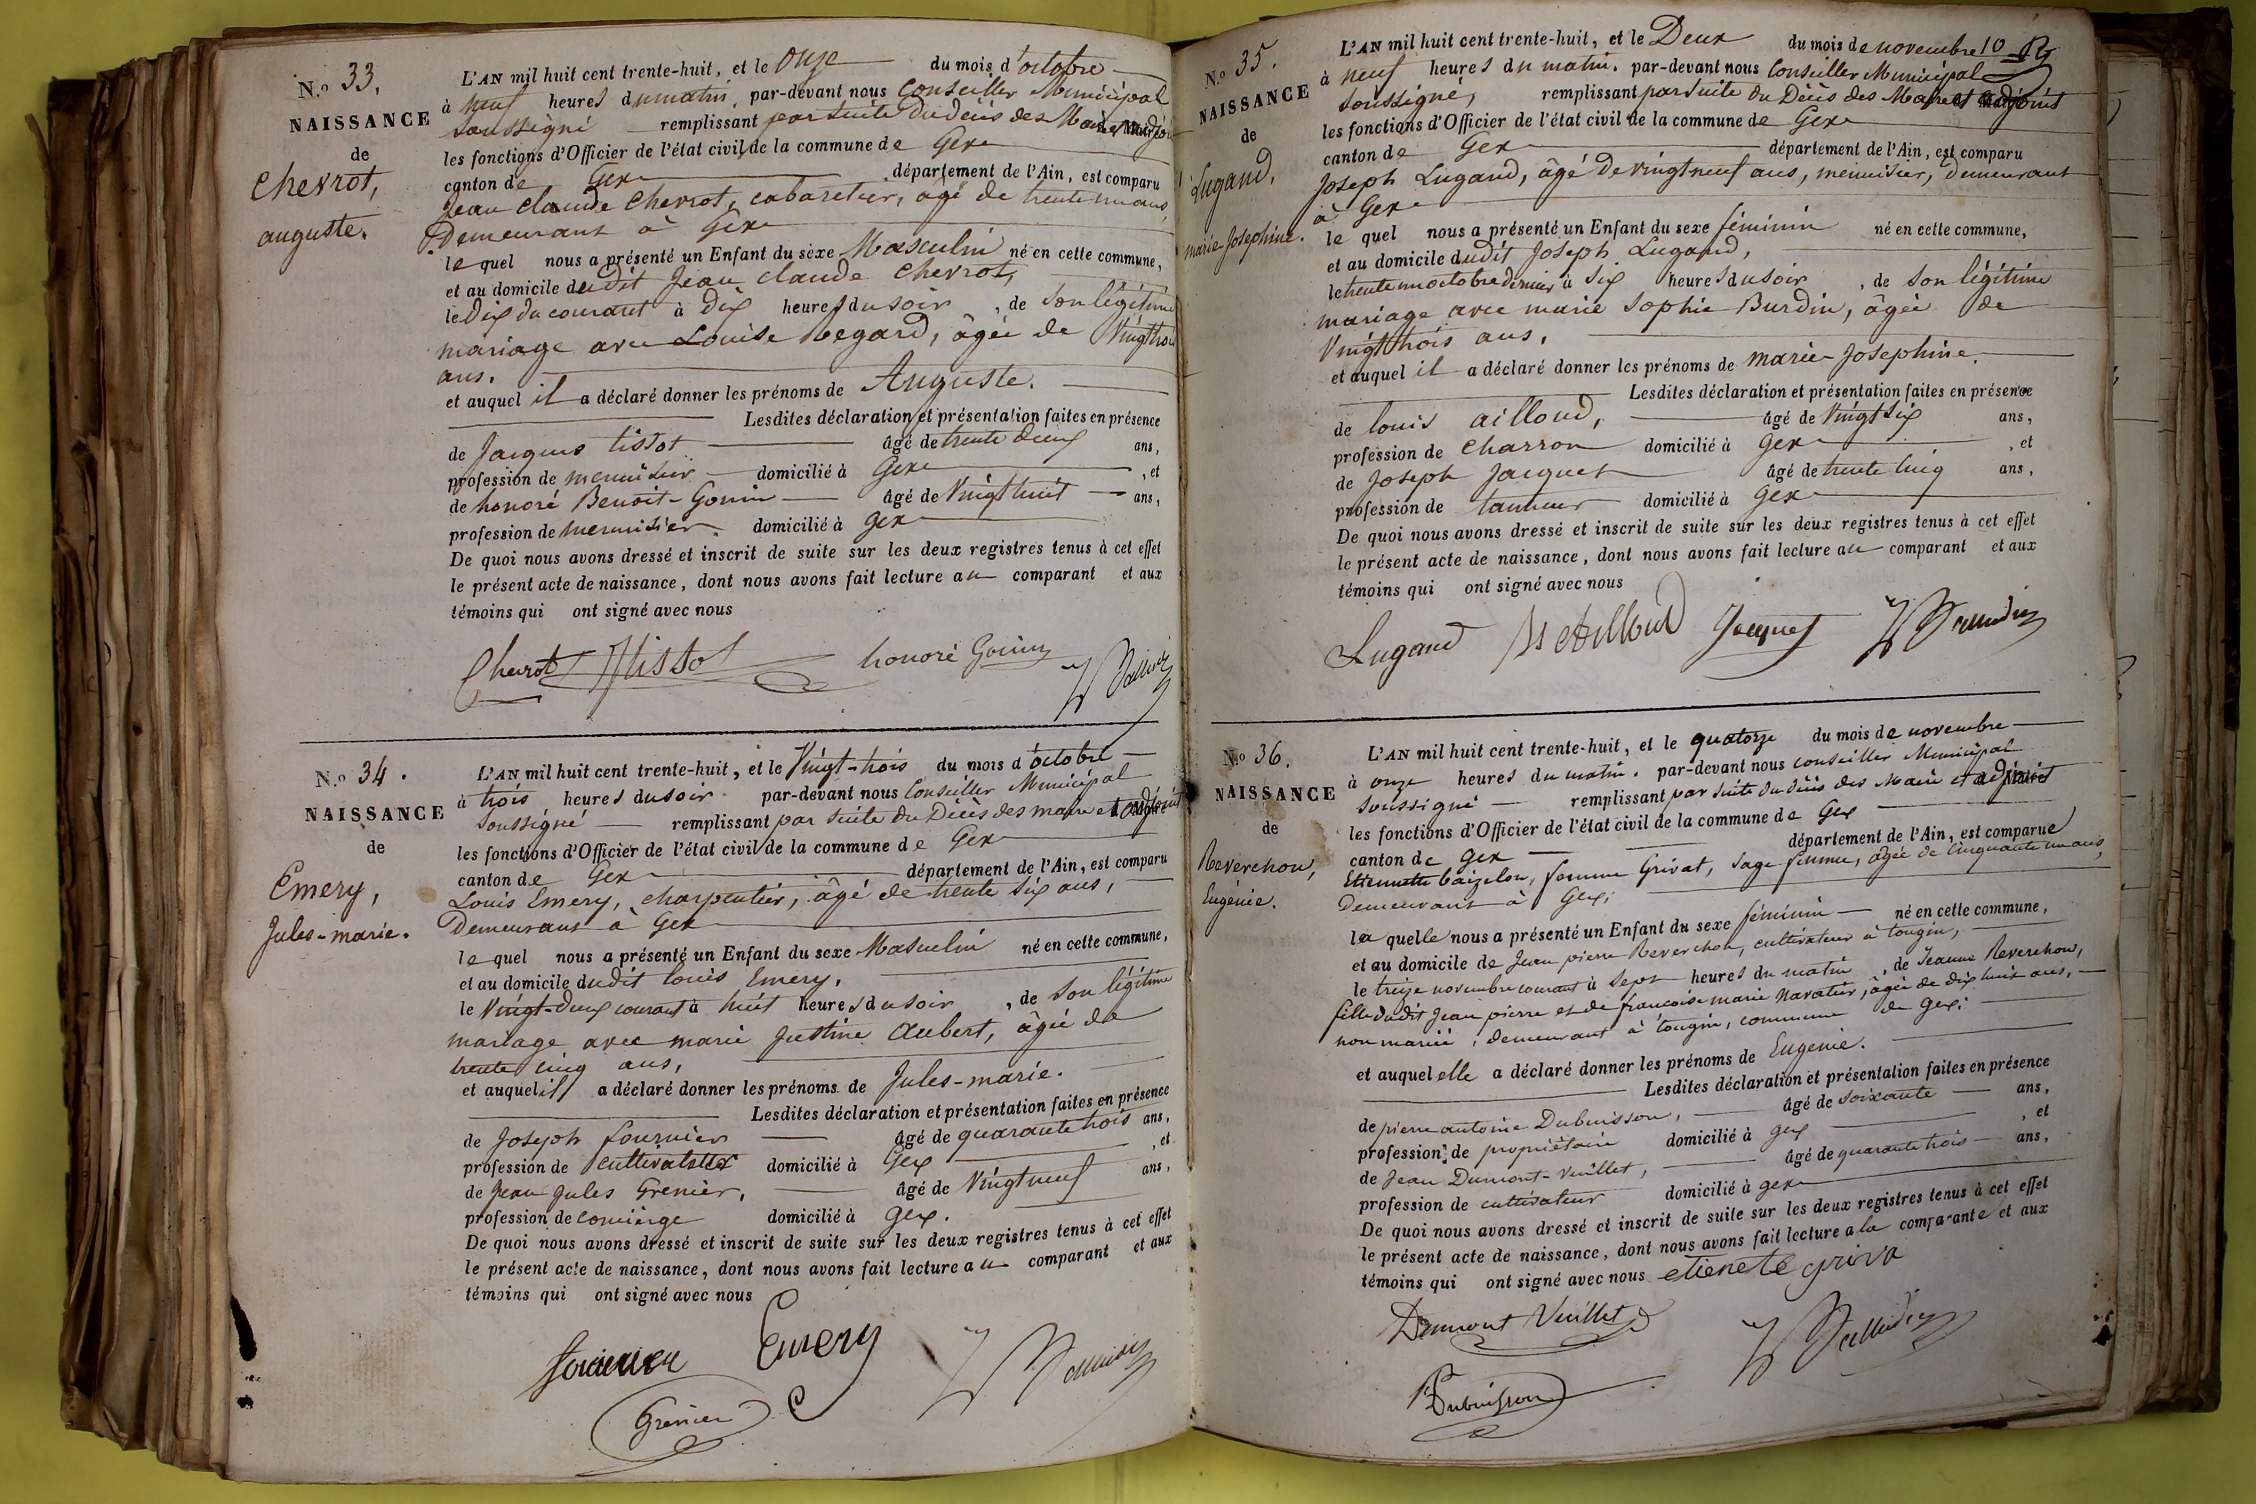 N.o 33.
NAISSANCE
de
Chevrot,
auguste.
L'AN mil huit cent trente-huit, et le onze du mois d'octobre
à neuf heures du matin, par-devant nous Conseiller Municipal
soussigné remplissant par suite du décès des Maire et adjoint
les fonctions d'Officier de l'état civil de la commune de Gex
canton de Gex département de l'Ain, est comparu
Jean claude Chevrot, cabaretier, âgé de trente un ans,
Demeurant à Gex
lequel nous a présenté un Enfant du sexe Masculin né en cette commune,
et au domicile dudit Jean claude Chevrot,
le Dix du courant à Dix heures du soir, de son légitime
mariage avec Louise Regard, âgée de Vingt trois
ans.
et auquel il a déclaré donner les prénoms de Auguste.
Lesdites déclaration et présentation faites en présence
de Jacques tissot âgé de trente deux ans,
profession de menuisier domicilié à Gex, et
de honoré Benoit-Gonin âgé de Vingt huit ans,
profession de menuisier domicilié à Gex
De quoi nous avons dressé et inscrit de suite sur les deux registres tenus à cet effet
le présent acte de naissance, dont nous avons fait lecture au comparant et aux
témoins qui ont signé avec nous
Chevrot Tissot honoré Gonin
N.o 34.
NAISSANCE
de
Emery,
Jules-marie.
L'AN mil huit cent trente-huit, et le Vingt-trois du mois d'octobre
à trois heures du soir par-devant nous Conseiller Municipal
soussigné remplissant par suite du Décès des maire et adjoint
les fonctions d'Officier de l'état civil de la commune de Gex
canton de Gex département de l'Ain, est comparu
Louis Emery, charpentier, âgé de trente six ans,
Demeurant à Gex
lequel nous a présenté un Enfant du sexe Masculin né en cette commune,
et au domicile dudit Louis Emery,
le Vingt-deux courant à huit heures du soir, de son légitime
mariage avec marie Justine Aubert, âgée de
trente cinq ans,
et auquel il a déclaré donner les prénoms de Jules-marie.
Lesdites déclaration et présentation faites en présence
de Joseph fournier âgé de quarante trois ans,
profession de cultivateur domicilié à Gex, et
de Jean Jules Grenier, âgé de Vingt neuf ans,
profession de concierge domicilié à Gex.
De quoi nous avons dressé et inscrit de suite sur les deux registres tenus à cet effet
le présent acte de naissance, dont nous avons fait lecture au comparant et aux
témoins qui ont signé avec nous
fournier Emery
Grenier
N.o 35.
NAISSANCE
de
Lugand,
marie-Josephine.
L'AN mil huit cent trente-huit, et le Deux du mois de novembre 10
à neuf heures du matin. par-devant nous Conseiller Municipal
soussigné, remplissant par suite du Décès des Maire et adjoint
les fonctions d'Officier de l'état civil de la commune de Gex
canton de Gex département de l'Ain, est comparu
Joseph Lugand, âgé de vingt neuf ans, menuisier, demeurant
à Gex
lequel nous a présenté un Enfant du sexe féminin né en cette commune,
et au domicile dudit Joseph Lugand,
le trente un octobre dernier à six heures du soir, de son légitime
mariage avec marie sophie Burdin, âgée de
Vingt trois ans,
et auquel il a déclaré donner les prénoms de marie-Josephine.
Lesdites déclaration et présentation faites en présence
de louis ailloud, âgé de Vingt six ans,
profession de charron domicilié à Gex, et
de Joseph Jacquet âgé de trente cinq ans,
profession de tanneur domicilié à Gex
De quoi nous avons dressé et inscrit de suite sur les deux registres tenus à cet effet
le présent acte de naissance, dont nous avons fait lecture au comparant et aux
témoins qui ont signé avec nous
Lugand Ailloud Jacquet
N.o 36.
NAISSANCE
de
Reverchon,
Eugénie.
L'AN mil huit cent trente-huit, et le quatorze du mois de novembre
à onze heures du matin. par-devant nous conseiller Municipal
soussigné remplissant par suite du décès des Maire et adjoint
les fonctions d'Officier de l'état civil de la commune de Gex
canton de Gex département de l'Ain, est comparue
Etiennette femme Grivat, sage femme, âgée de cinquante un ans,
Demeurant à Gex;
laquelle nous a présenté un Enfant du sexe féminin né en cette commune,
et au domicile de Jean pierre Reverchon, cultivateur à tougin,
le treize novembre courant à sept heures du matin, de Jeanne Reverchon,
fille dudit Jean pierre et de françoise marie âgée de dix huit ans,
non mariée, demeurant à tougin, commune de Gex;
et auquel elle a déclaré donner les prénoms de Eugenie.
Lesdites déclaration et présentation faites en présence
de pierre antoine Dubuisson, âgé de soixante ans,
profession de propriétaire domicilié à gex, et
de Jean Dumont-Vuillet, âgé de quarante trois ans,
profession de cultivateur domicilié à gex
De quoi nous avons dressé et inscrit de suite sur les deux registres tenus à cet effet
le présent acte de naissance, dont nous avons fait lecture à la comparante et aux
témoins qui ont signé avec nous etienete griva
Dumont Vuillet
Dubuisson